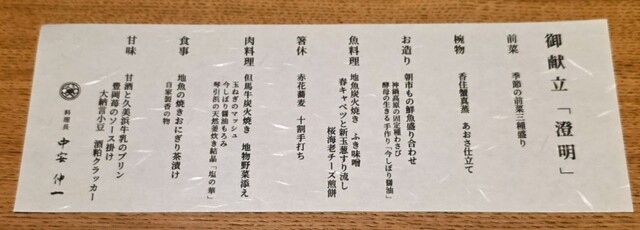 御献立「澄明」
前菜
季節の前菜三種盛り
椀物
香住蟹真蒸　あおさ仕立て
お造り
朝市もの鮮魚盛り合わせ
神鍋高原の固定種わさび
酵母の生きる手作り「今しぼり醤油」
魚料理
地魚炭火焼き　ふき味噌
春キャベツと新玉葱すり流し
桜海老チーズ煎餅
箸休
赤花蕎麦　十割手打ち
肉料理
但馬牛炭火焼き　地物野菜添え
玉ねぎのマッシュ
今しぼり醤油もろみ
琴引浜の天然釜炊き結晶「塩の華」
食事
地魚の焼きおにぎり茶漬け
自家製香の物
甘味
甘酒と久美浜牛乳のプリン
豊岡苺のソース掛け
大納言小豆　酒粕クラッカー
料理長　中安伸一